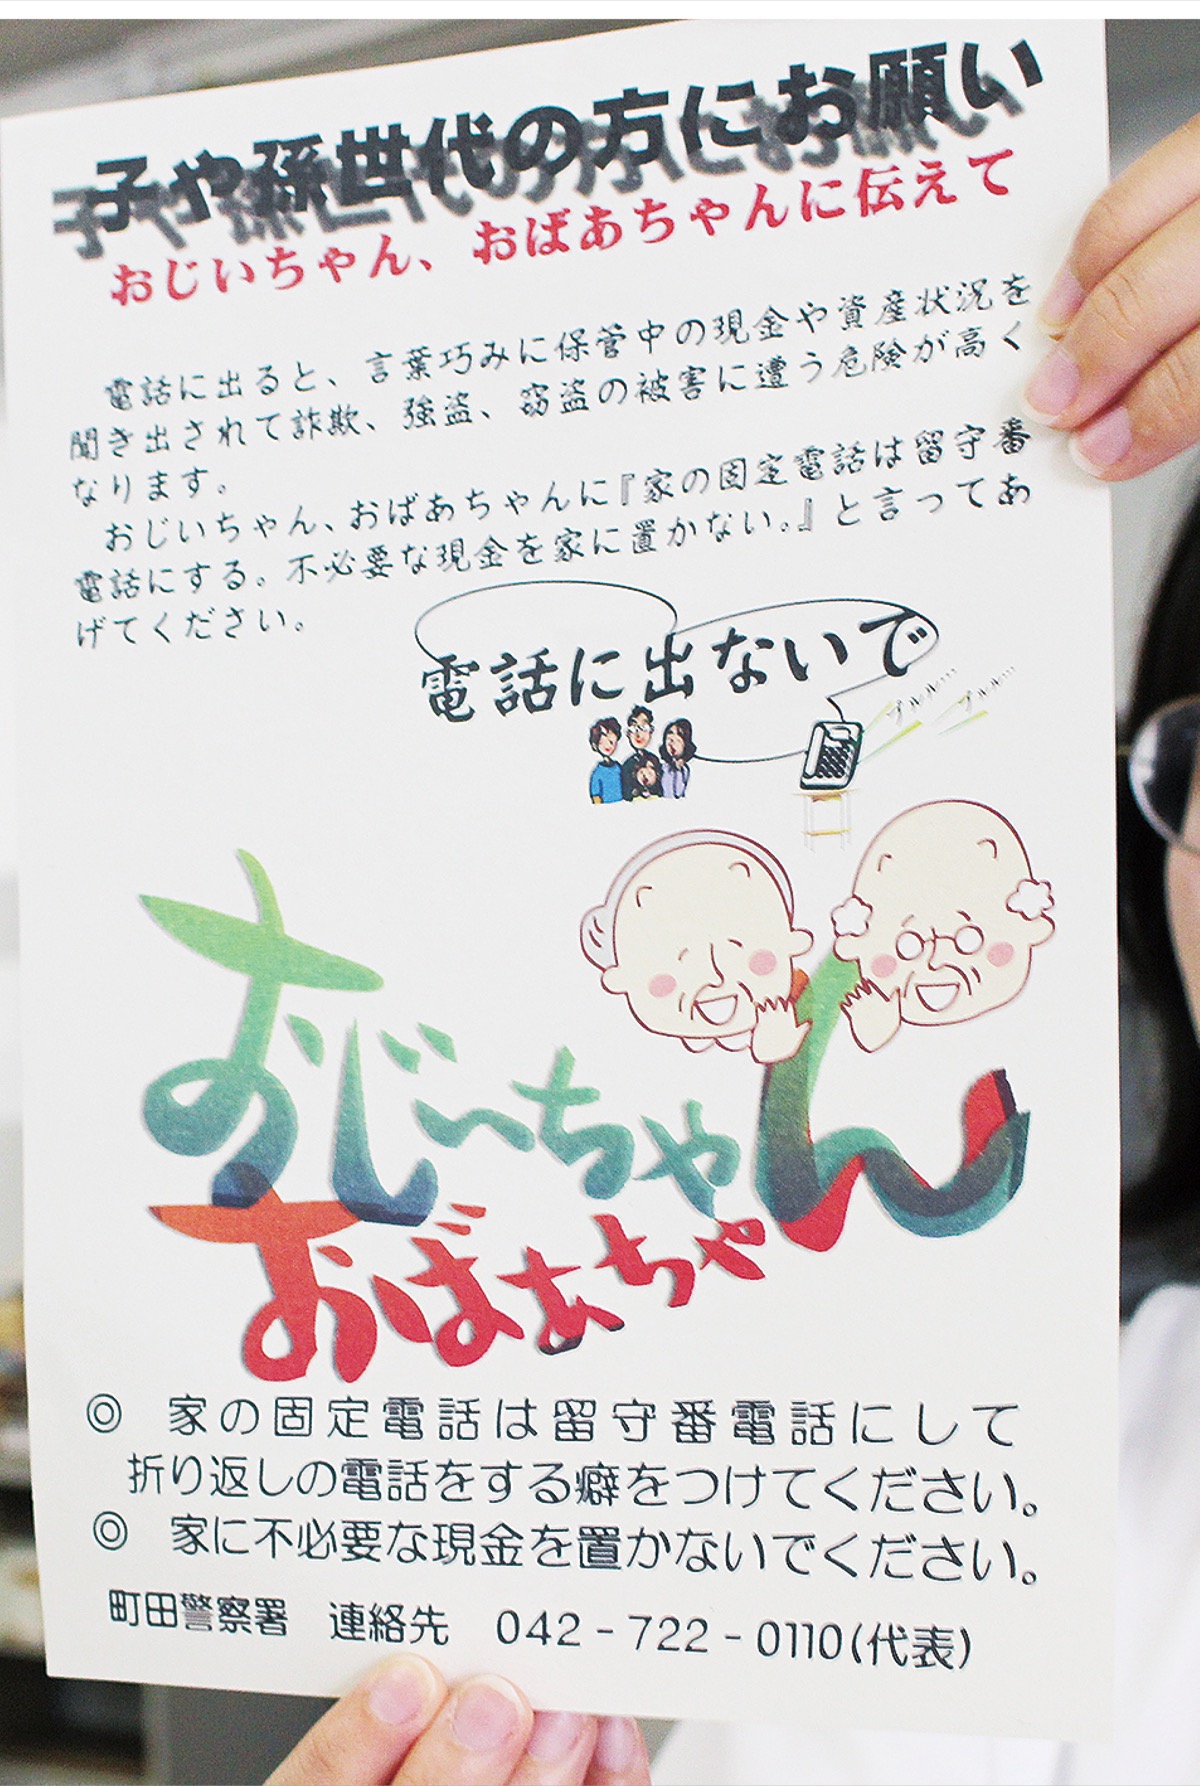 子や孫世代の方にお願い
おじいちゃん、おばあちゃんに伝えて
電話に出ると、言葉巧みに保管中の現金や資産状況を
聞き出されて詐欺、強盗、窃盗の被害に遭う危険が高く
なります。
おじいちゃん、おばあちゃんに『家の固定電話は留守番
電話にする。不必要な現金を家に置かない。』と言ってあ
げてください。
電話に出ないで
プルル… プルル…
おじいちゃん
おばあちゃん
◎ 家の固定電話は留守番電話にして
折り返しの電話をする癖をつけてください。
◎ 家に不必要な現金を置かないでください。
町田警察署 連絡先 042-722-0110(代表)